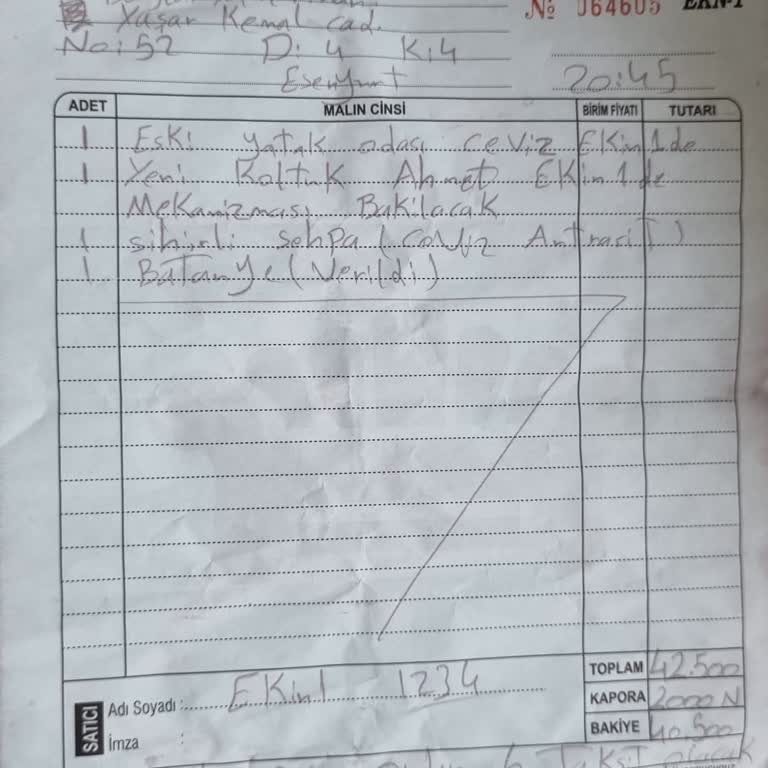 Yaşar Kemal cad. № 064605 EKN-1
No: 52 D: 4 K: 4
Esenyurt 20:45
ADET MALIN CİNSİ BİRİM FİYATI TUTARI
1 Eski yatak odası ceviz Ekin 1 de
1 Yeni Koltuk Ahmet Ekin 1 de
Mekanizması Bakılacak
1 sihirli sehpa (ceviz Antrasit)
1 Battanye (Verildi)
TOPLAM 42.500
SATICI Adı Soyadı : Ekin1 1234 KAPORA 2000 N
İmza : BAKİYE 40.500
6 Taksit olacak